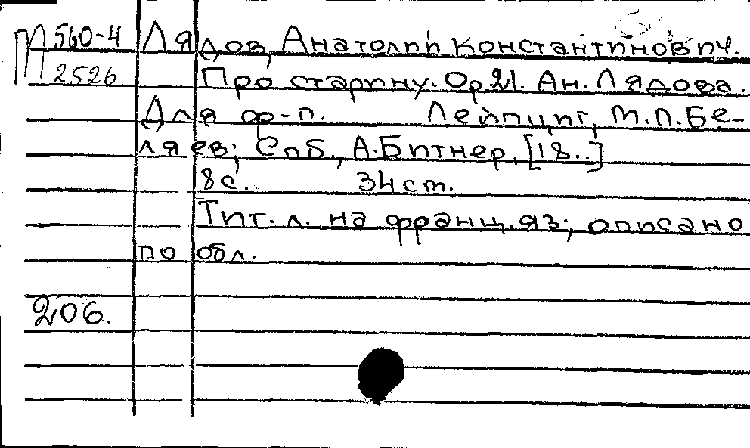 М 560-4 Лядов, Анатолий Константинович.
2526 Про старину. Op 21. Ан. Лядова.
Для ф-п. Лейпциг, М.П.Бе-
ляев; Спб., А.Битнер, [18..]
8 с. 34 см.
Тит. л. на франц. яз; описано
по обл.
206.